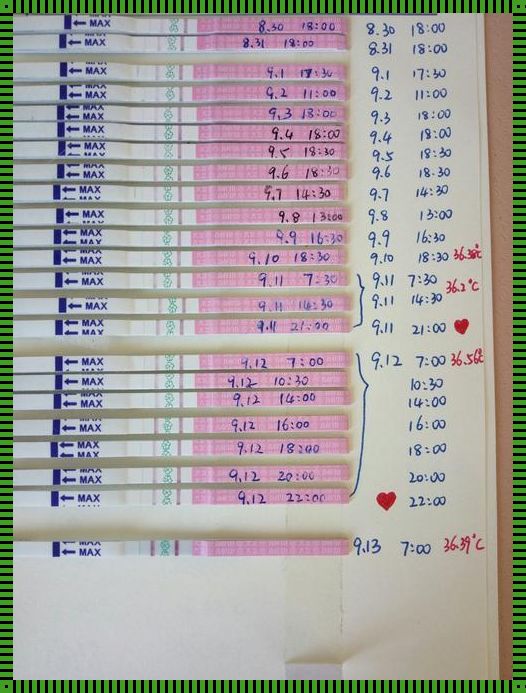 MAX 8.30 18:00 8.30 18:00
MAX 8.31 18:00 8.31 18:00
MAX 9.1 17:30 9.1 17:30
MAX 9.2 11:00 9.2 11:00
MAX 9.3 18:00 9.3 18:00
MAX 9.4 18:00 9.4 18:00
MAX 9.5 18:30 9.5 18:30
MAX 9.6 18:30 9.6 18.30
MAX 9.7 14:30 9.7 14:30
MAX 9.8 13:00 9.8 13:00
MAX 9.9 16:30 9.9 16:30
MAX 9.10 18:30 9.10 18:30 36.38℃
MAX 9.11 7:30 9.11 7:30
36.2℃
MAX 9.11 14:30 9.11 14:30
MAX 9.11 21:00 9.11 21:00
MAX 9.12 7:00 9.12 7:00 36.56℃
MAX 9.12 10:30 10:30
MAX 9.12 14:00 14:00
MAX 9.12 16:00 16:00
MAX 9.12 18:00 18:00
MAX 9.12 20:00 20:00
MAX 9.12 22:00 22:00
MAX 9.13 7:00 36.39℃
MAX